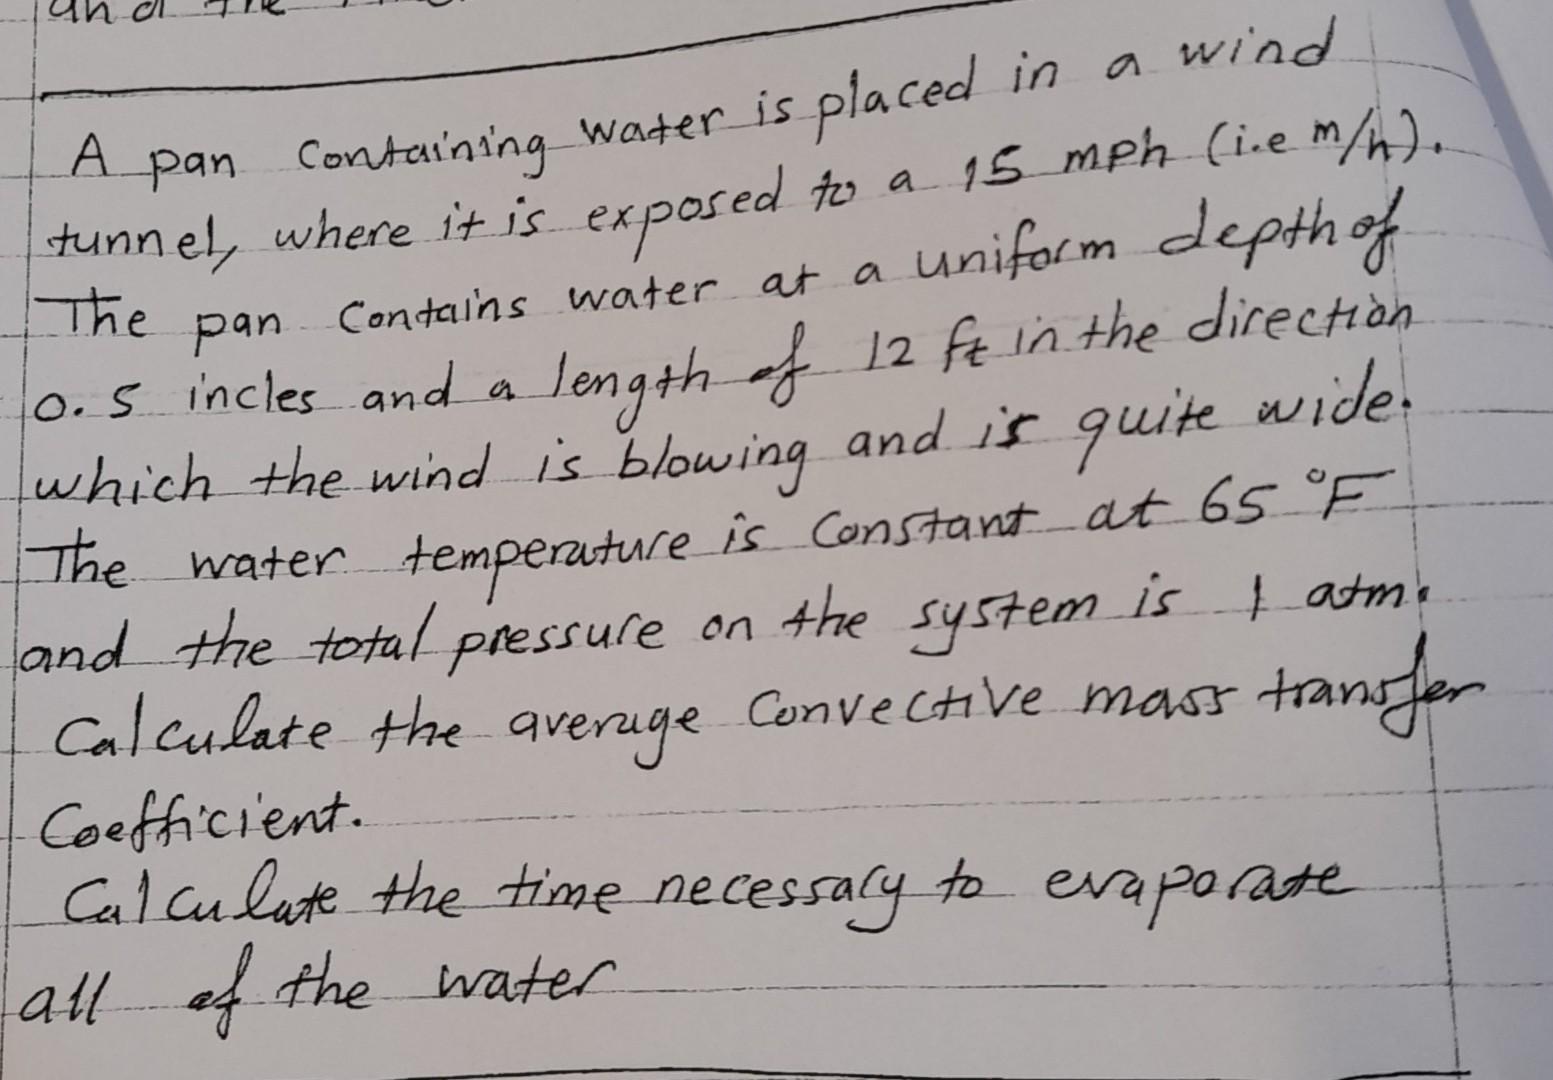 and the
A pan containing water is placed in a wind
tunnel, where it is exposed to a 15 mph (i.e m/h).
The pan contains water at a uniform depth of
0.5 incles and a length of 12 ft in the direction
which the wind is blowing and is quite wide.
The water temperature is constant at 65 °F
and the total pressure on the system is 1 atm.
Calculate the average convective mass transfer
Coefficient.
Calculate the time necessary to evaporate
all of the water